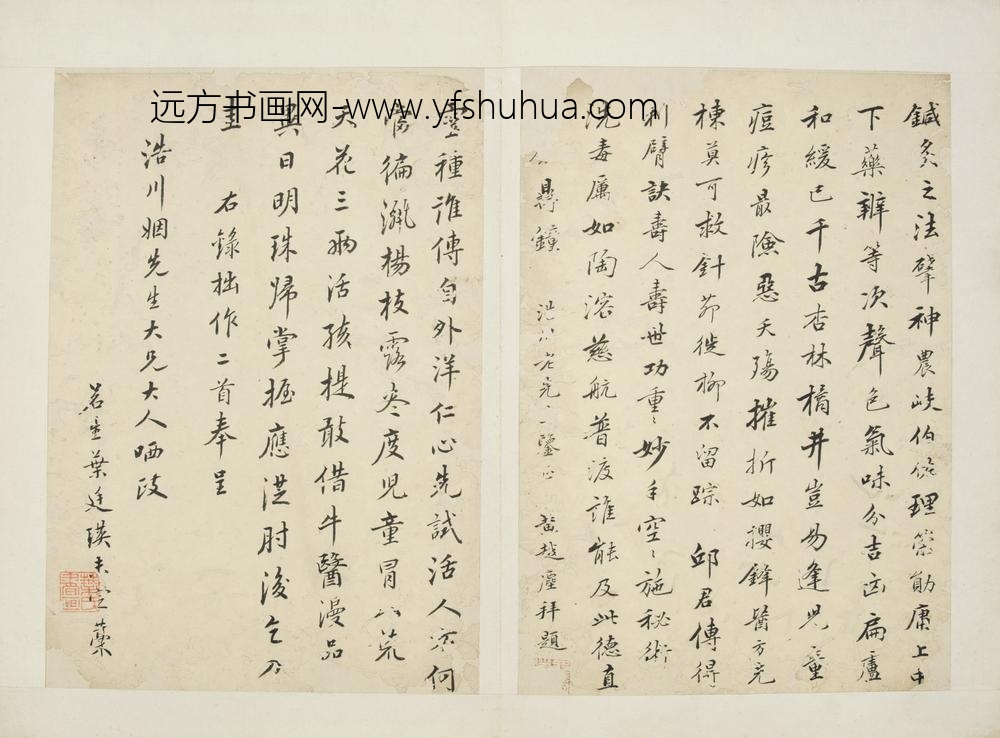 远方书画网-www.yfshuhua.com
鍼灸之法肇神農岐伯俗理策勛庸上中
下藥辨等次聲色氣味分吉凶扁盧
和緩已千古杏林橘井豈易逢兒童
痘疹最險惡夭殤摧折如攖鋒醫方充
棟莫可救針茆徙柳不留踪 邱君傳得
刺臂訣壽人壽世功重重妙手空空施秘術
洗毒厲如陶溶慈航普渡誰能及此德直
鼎鐘 浩川老先鑒正 黃越塵拜題
靈種誰傳自外洋仁心先試活人何
徧灑楊枝露盡度兒童冒八荒
天花三兩活孩提敢借牛醫漫品
異日明珠歸掌握應從肘後乞刀
圭 右錄拙作二首奉呈
浩川姻先生大兄大人哂政
葉廷瑛未定藁